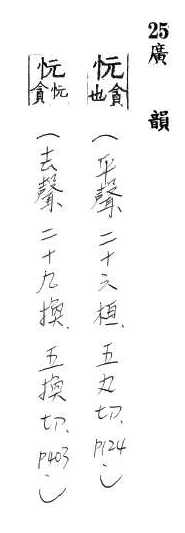 25廣韻
忨貪也(平聲、二十六桓、五丸切、P124)
忨忨貪(去聲、二十九換、五換切、P403)